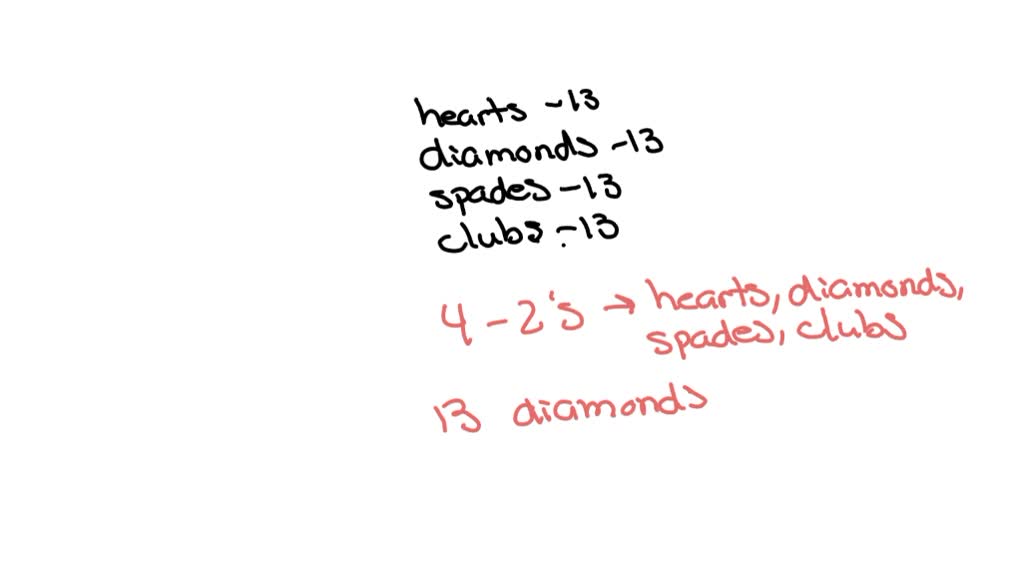 hearts -13
diamonds -13
spades -13
clubs -13
4 - 2's → hearts, diamonds,
spades, clubs
13 diamonds